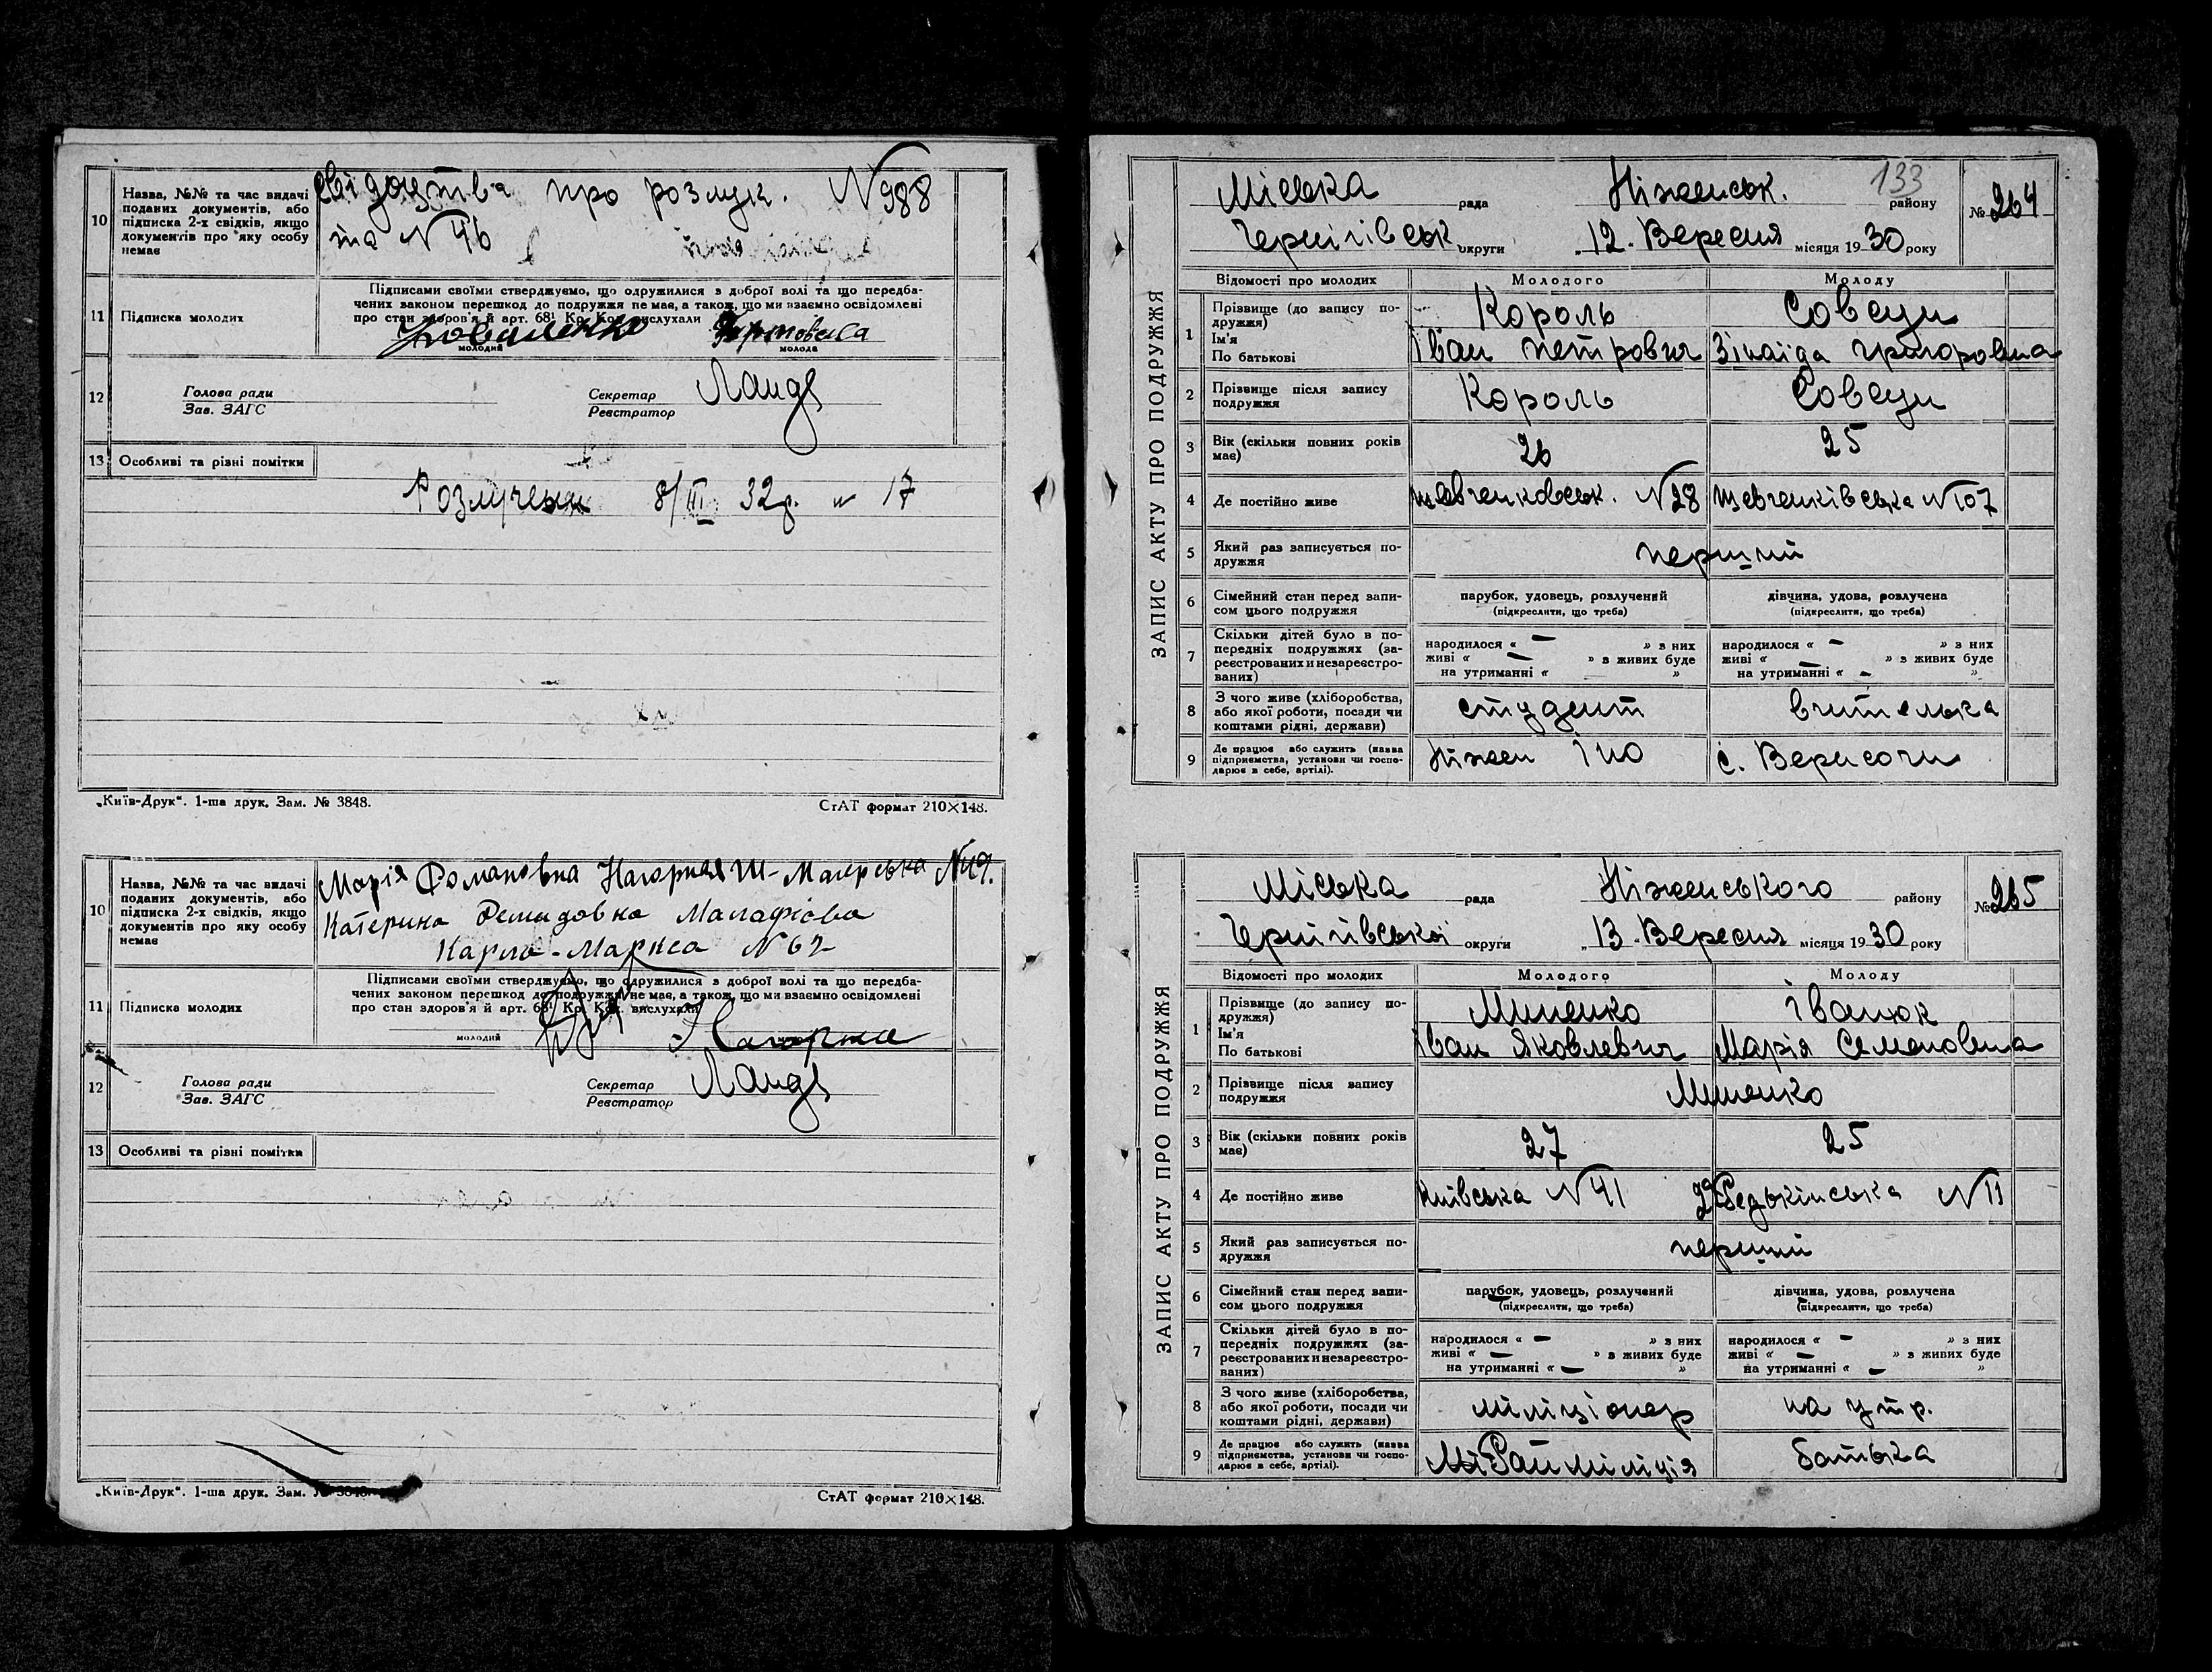 10 Назва, №№ та час видачі поданих документів, або підписка 2-х свідків, якщо документів про яку особу немає
свідоцтва про розлук. N 988
та N 46
11 Підписка молодих
Підписами своїми стверджуємо, що одружилися з доброї волі та що передба-
чених законом перешкод до подружжя не має, а також, що ми взаємно освідомлені
про стан здоров'я й арт. 68¹ Кр. Код. вислухали
Коваленко
молодий молода
12 Голова ради
Зав. ЗАГС
Секретар
Реєстратор
Ланде
13 Особливі та різні помітки
Розлучені 8/III 32 р. № 17
„Київ-Друк“. 1-ша друк. Зам. № 3848. СтАТ формат 210×148.
10 Назва, №№ та час видачі поданих документів, або підписка 2-х свідків, якщо документів про яку особу немає
Марія Фомановна Нагорная Ш-Магерська N 49.
Катерина Демидовна Малафіова
Карла-Маркса N 62
11 Підписка молодих
Підписами своїми стверджуємо, що одружилися з доброї волі та що передба-
чених законом перешкод до подружжя не має, а також, що ми взаємно освідомлені
про стан здоров'я й арт. 68¹ Кр. Код. вислухали
молодий
Нагорна
12 Голова ради
Зав. ЗАГС
Секретар
Реєстратор
Ланде
13 Особливі та різні помітки
„Київ-Друк“. 1-ша друк. Зам. № 3848. СтАТ формат 210×148.
133
Міська рада Ніженськ. району № 264
Чернігівськ округи „12. Вересня місяця 1930 року
ЗАПИС АКТУ ПРО ПОДРУЖЖЯ
Відомості про молодих Молодого Молоду
1 Прізвище (до запису по-
дружжя)
Ім'я
По батькові
Король Совеци
Іван Петрович Зінаїда Григоровна
2 Прізвище після запису подружжя Король Совеци
3 Вік (скільки повних років має) 26 25
4 Де постійно живе Шевченковськ. N 28 Шевченківська N 107
5 Який раз записується по-
дружжя перший
6 Сімейний стан перед запи-
сом цього подружжя
парубок, удовець, розлучений дівчина, удова, розлучена
(підкреслити, що треба) (підкреслити, що треба)
7 Скільки дітей було в по-
передніх подружжях (за-
реєстрованих и незареєстро-
ваних)
народилося « — » з них народилося « — » з них
живі « — » з живих буде живі « — » з живих буде
на утриманні « » на утриманні « — »
8 З чого живе (хліборобства, або якої роботи, посади чи коштами рідні, держави) студент вчителька
9 Де працює або служить (назва підприємства, установи чи госпо-
дарює в себе, артілі). Ніжен ІНО с. Вересочи
Міська рада Ніженського району № 265
Чернігівської округи „13. Вересня місяця 1930 року
ЗАПИС АКТУ ПРО ПОДРУЖЖЯ
Відомості про молодих Молодого Молоду
1 Прізвище (до запису по-
дружжя)
Ім'я
По батькові
Миненко Іванюк
Іван Яковлевич Марія Семеновна
2 Прізвище після запису подружжя Миненко
3 Вік (скільки повних років має) 27 25
4 Де постійно живе Київська N 41 Редькінська N 11
5 Який раз записується по-
дружжя перший
6 Сімейний стан перед запи-
сом цього подружжя
парубок, удовець, розлучений дівчина, удова, розлучена
(підкреслити, що треба) (підкреслити, що треба)
7 Скільки дітей було в по-
передніх подружжях (за-
реєстрованих и незареєстро-
ваних)
народилося « — » з них народилося « — » з них
живі « — » з живих буде живі « — » з живих буде
на утриманні « — » на утриманні « — »
8 З чого живе (хліборобства, або якої роботи, посади чи коштами рідні, держави) міліціонер на утр.
9 Де працює або служить (назва підприємства, установи чи госпо-
дарює в себе, артілі). Райміліція батька